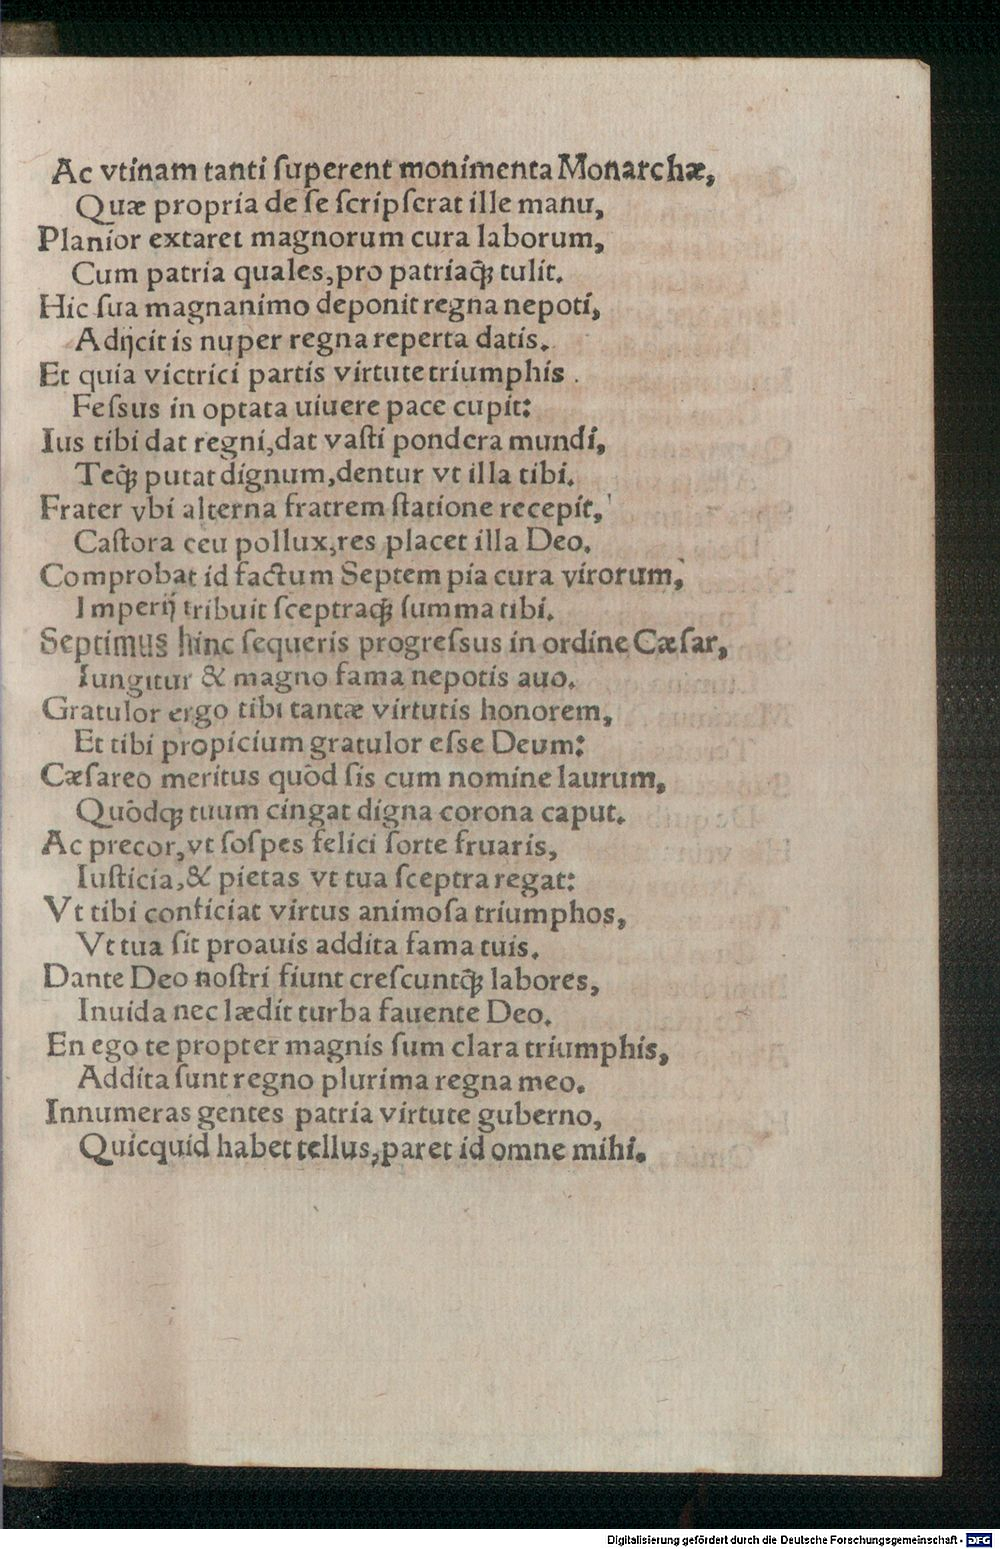 Ac vtinam tanti ſuperent monimenta Monarchæ,
Quæ propria de ſe ſcripſerat ille manu,
Planior extaret magnorum cura laborum,
Cum patria quales, pro patriaq́ꝫ tulit.
Hic ſua magnanimo deponit regna nepoti,
Adijcit is nuper regna reperta datis.
Et quia victrici partis virtute triumphis .
Feſsus in optata uiuere pace cupit:
Ius tibi dat regni, dat vaſti pondera mundi,
Teq́ꝫ putat dignum, dentur vt illa tibi.
Frater vbi alterna fratrem ſtatione recepit,
Caſtora ceu pollux, res placet illa Deo.
Comprobat id factum Septem pia cura virorum,
Imperij tribuit ſceptraq́ꝫ ſumma tibi.
Septimus hinc ſequeris progreſsus in ordine Cæſar,
Iungitur & magno fama nepotis auo.
Gratulor ergo tibi tantæ virtutis honorem,
Et tibi propicium gratulor eſse Deum:
Cæſareo meritus quòd ſis cum nomine laurum,
Quòdqꝫ tuum cingat digna corona caput.
Ac precor, vt ſoſpes felici ſorte fruaris,
Iuſticia, & pietas vt tua ſceptra regat:
Vt tibi conficiat virtus animoſa triumphos,
Vt tua ſit proauis addita fama tuis.
Dante Deo noſtri fiunt creſcuntq́ꝫ labores,
Inuida nec lædit turba fauente Deo.
En ego te propter magnis ſum clara triumphis,
Addita ſunt regno plurima regna meo.
Innumeras gentes patria virtute guberno,
Quicquid habet tellus, paret id omne mihi.
Digitalisierung gefördert durch die Deutsche Forschungsgemeinschaft - DFG